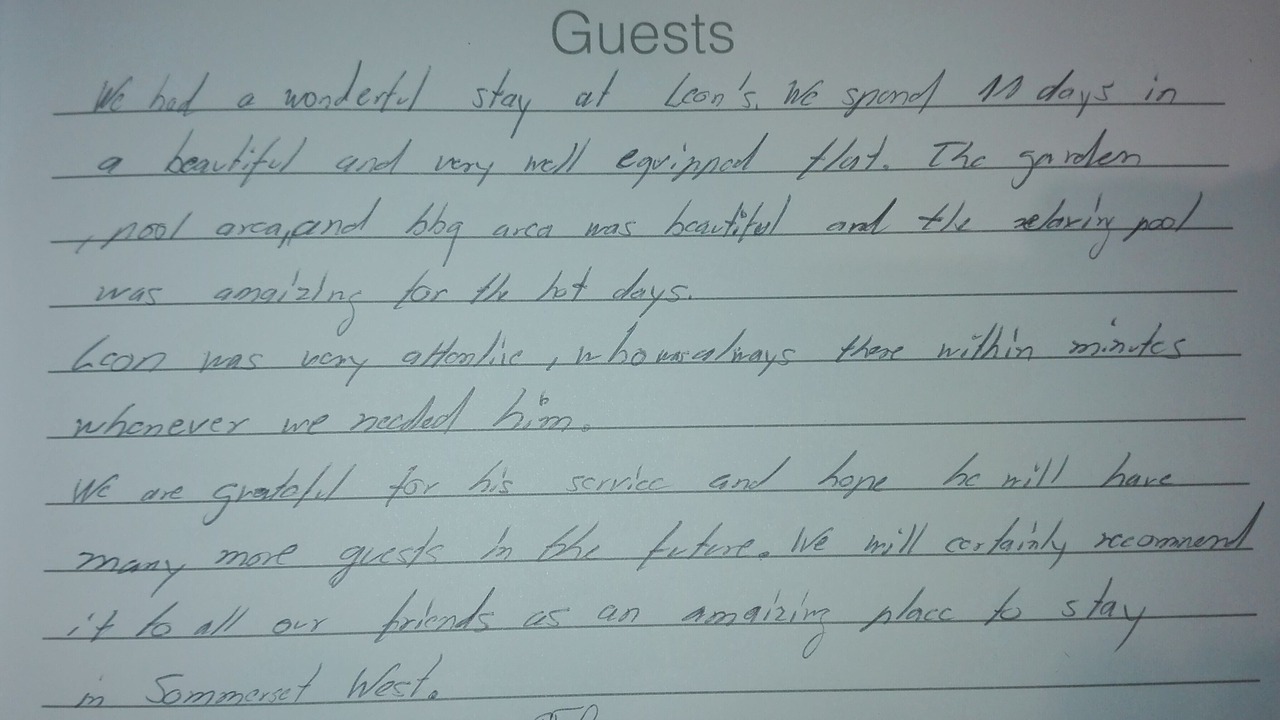 Guests
We had a wonderful stay at Leon's. We spend 11 days in
a beautiful and very well equipped flat. The garden
, pool area, and bbq area was beautiful and the relaxing pool
was amaizing for the hot days.
Leon was very attentive, who was always there within minutes
whenever we needed him.
We are grateful for his service and hope he will have
many more guests in the future. We will certainly recommend
it to all our friends as an amaizing place to stay
in Sommerset West.